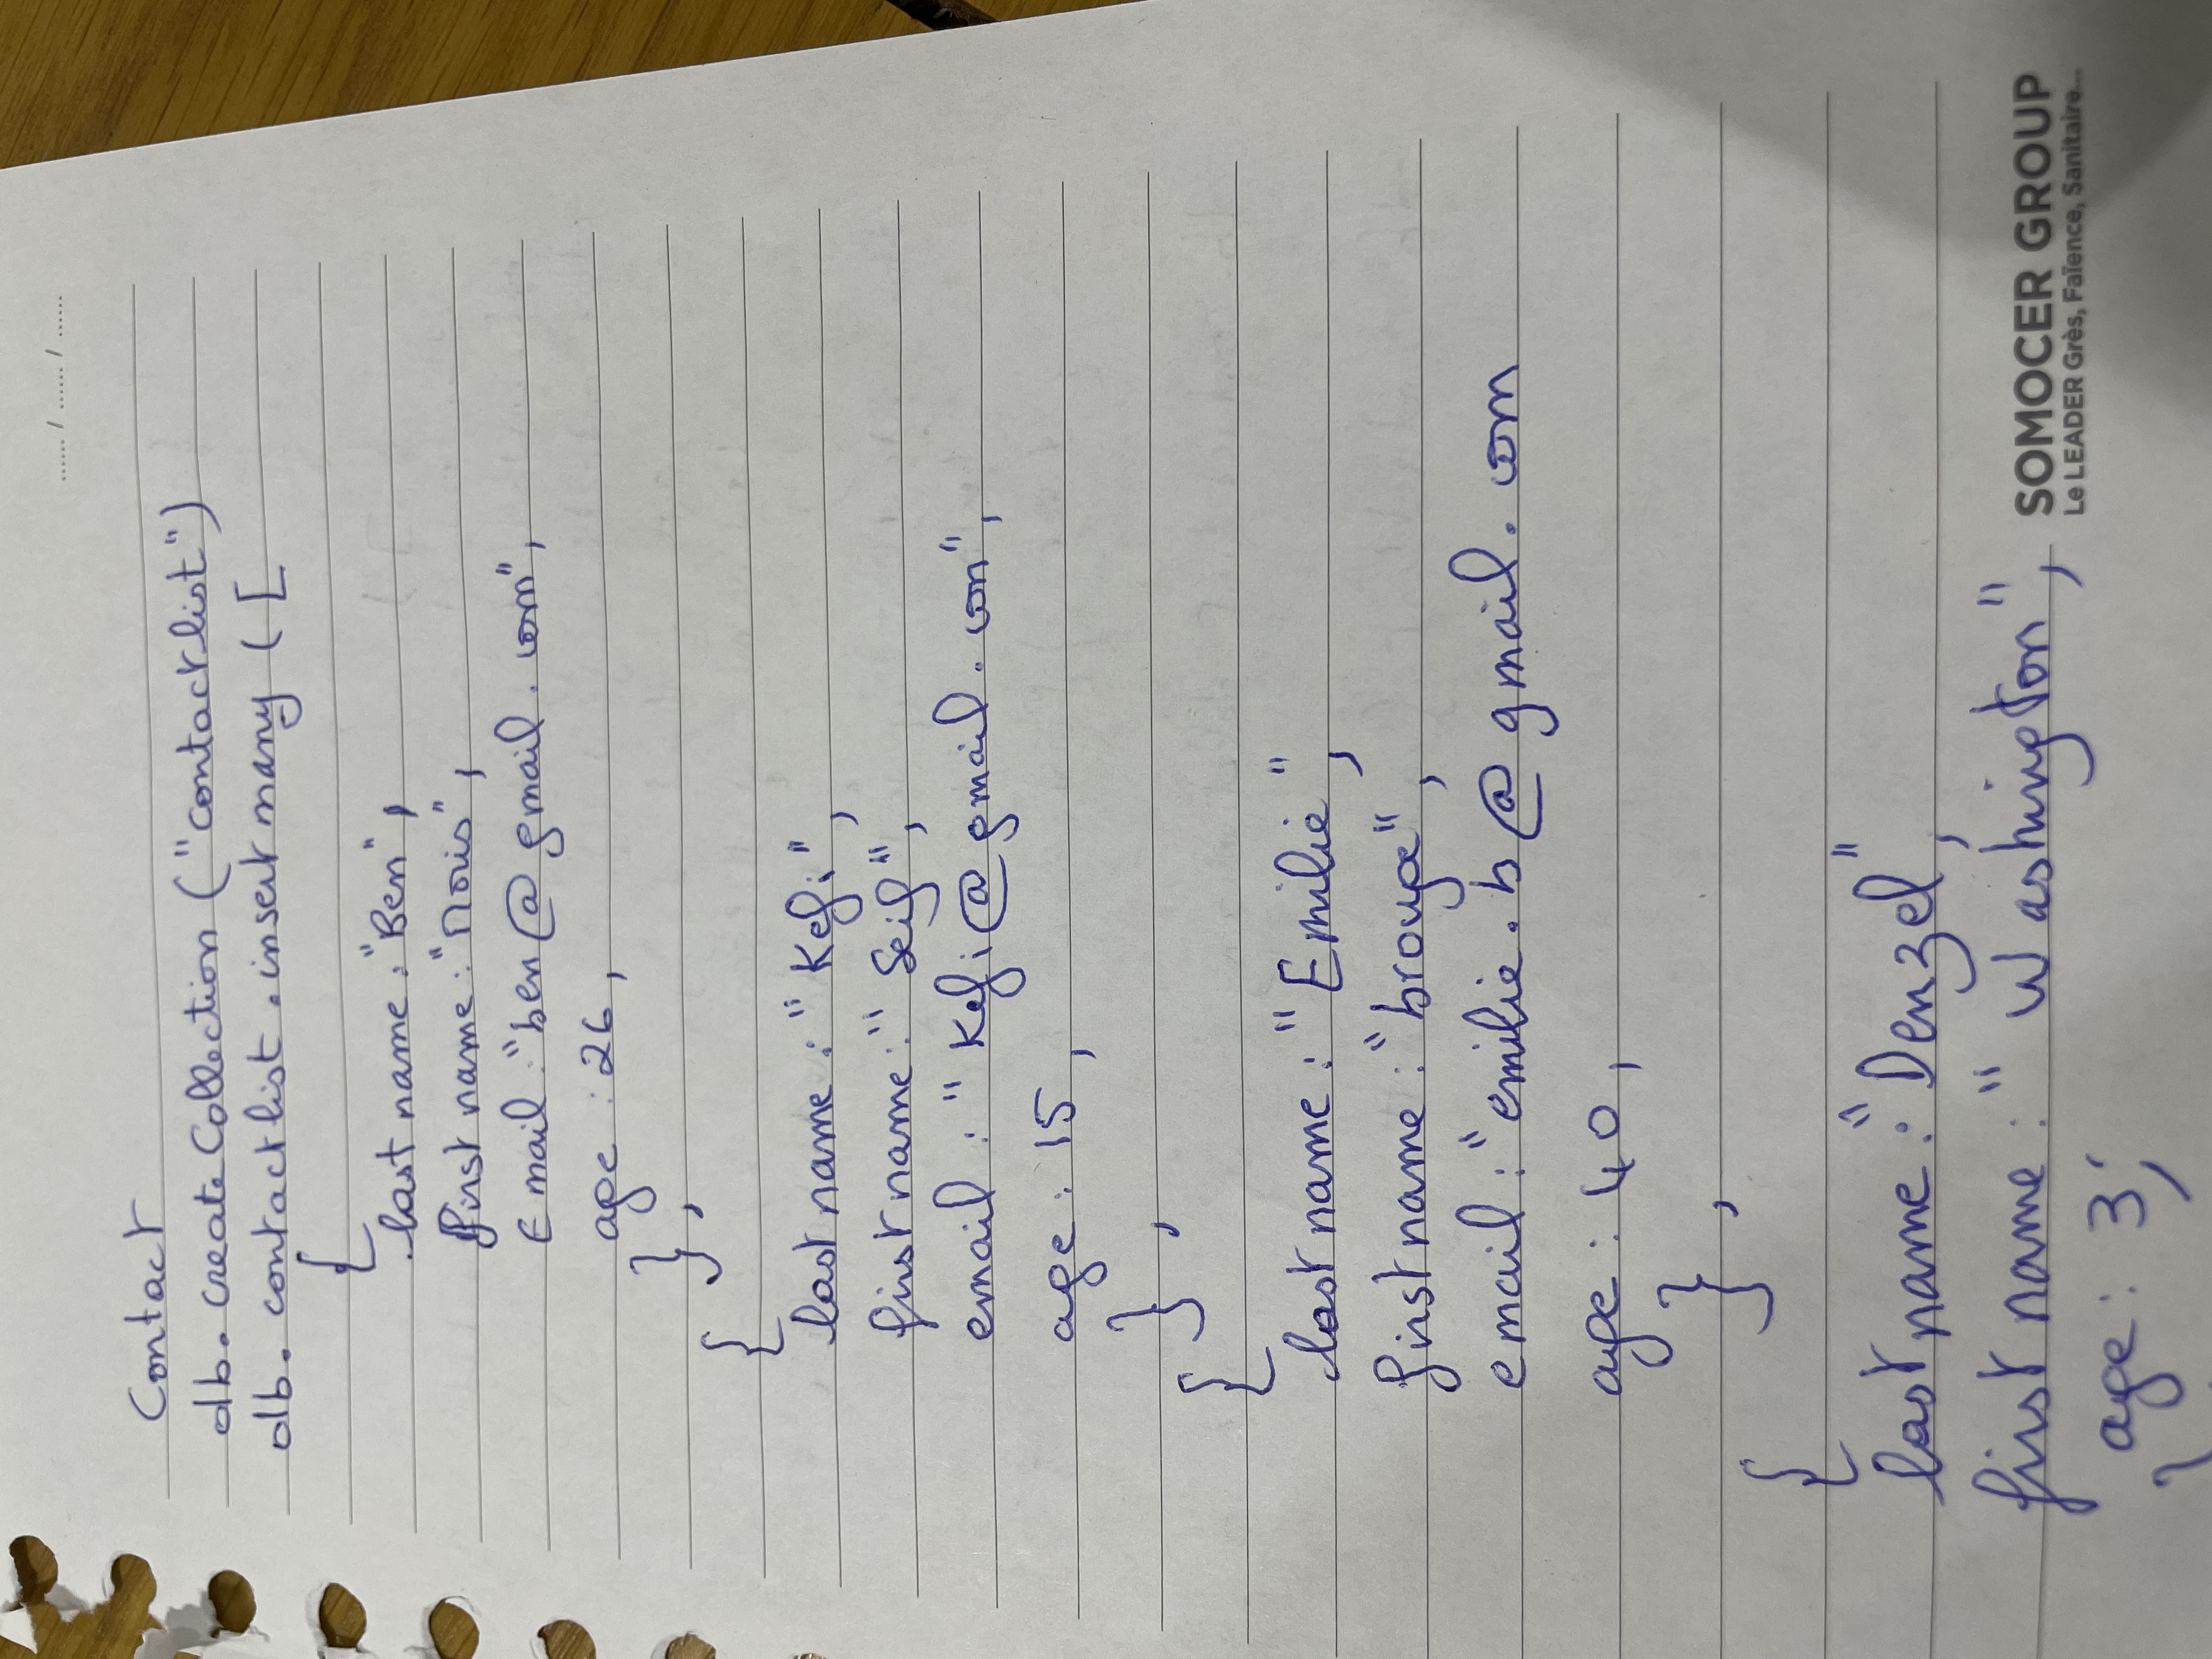 ...... / ...... / ......
Contact
db. create Collection ("contactlist")
db. contactlist .insert many ( [
{
last name : "Ben",
first name : "Moris",
Email : "ben@gmail.com",
age : 26,
} ,
{
last name : "Kefi",
first name : "Seif",
email : "Kefi@gmail.con",
age : 15,
} ,
{
last name : "Emilie",
first name : "brouge",
email : "emilie.b@gmail.com
age : 40,
} ,
{
last name : "Denzel",
first name : "Washington",
age : 3;
}
SOMOCER GROUP
Le LEADER Grès, Faïence, Sanitaire...